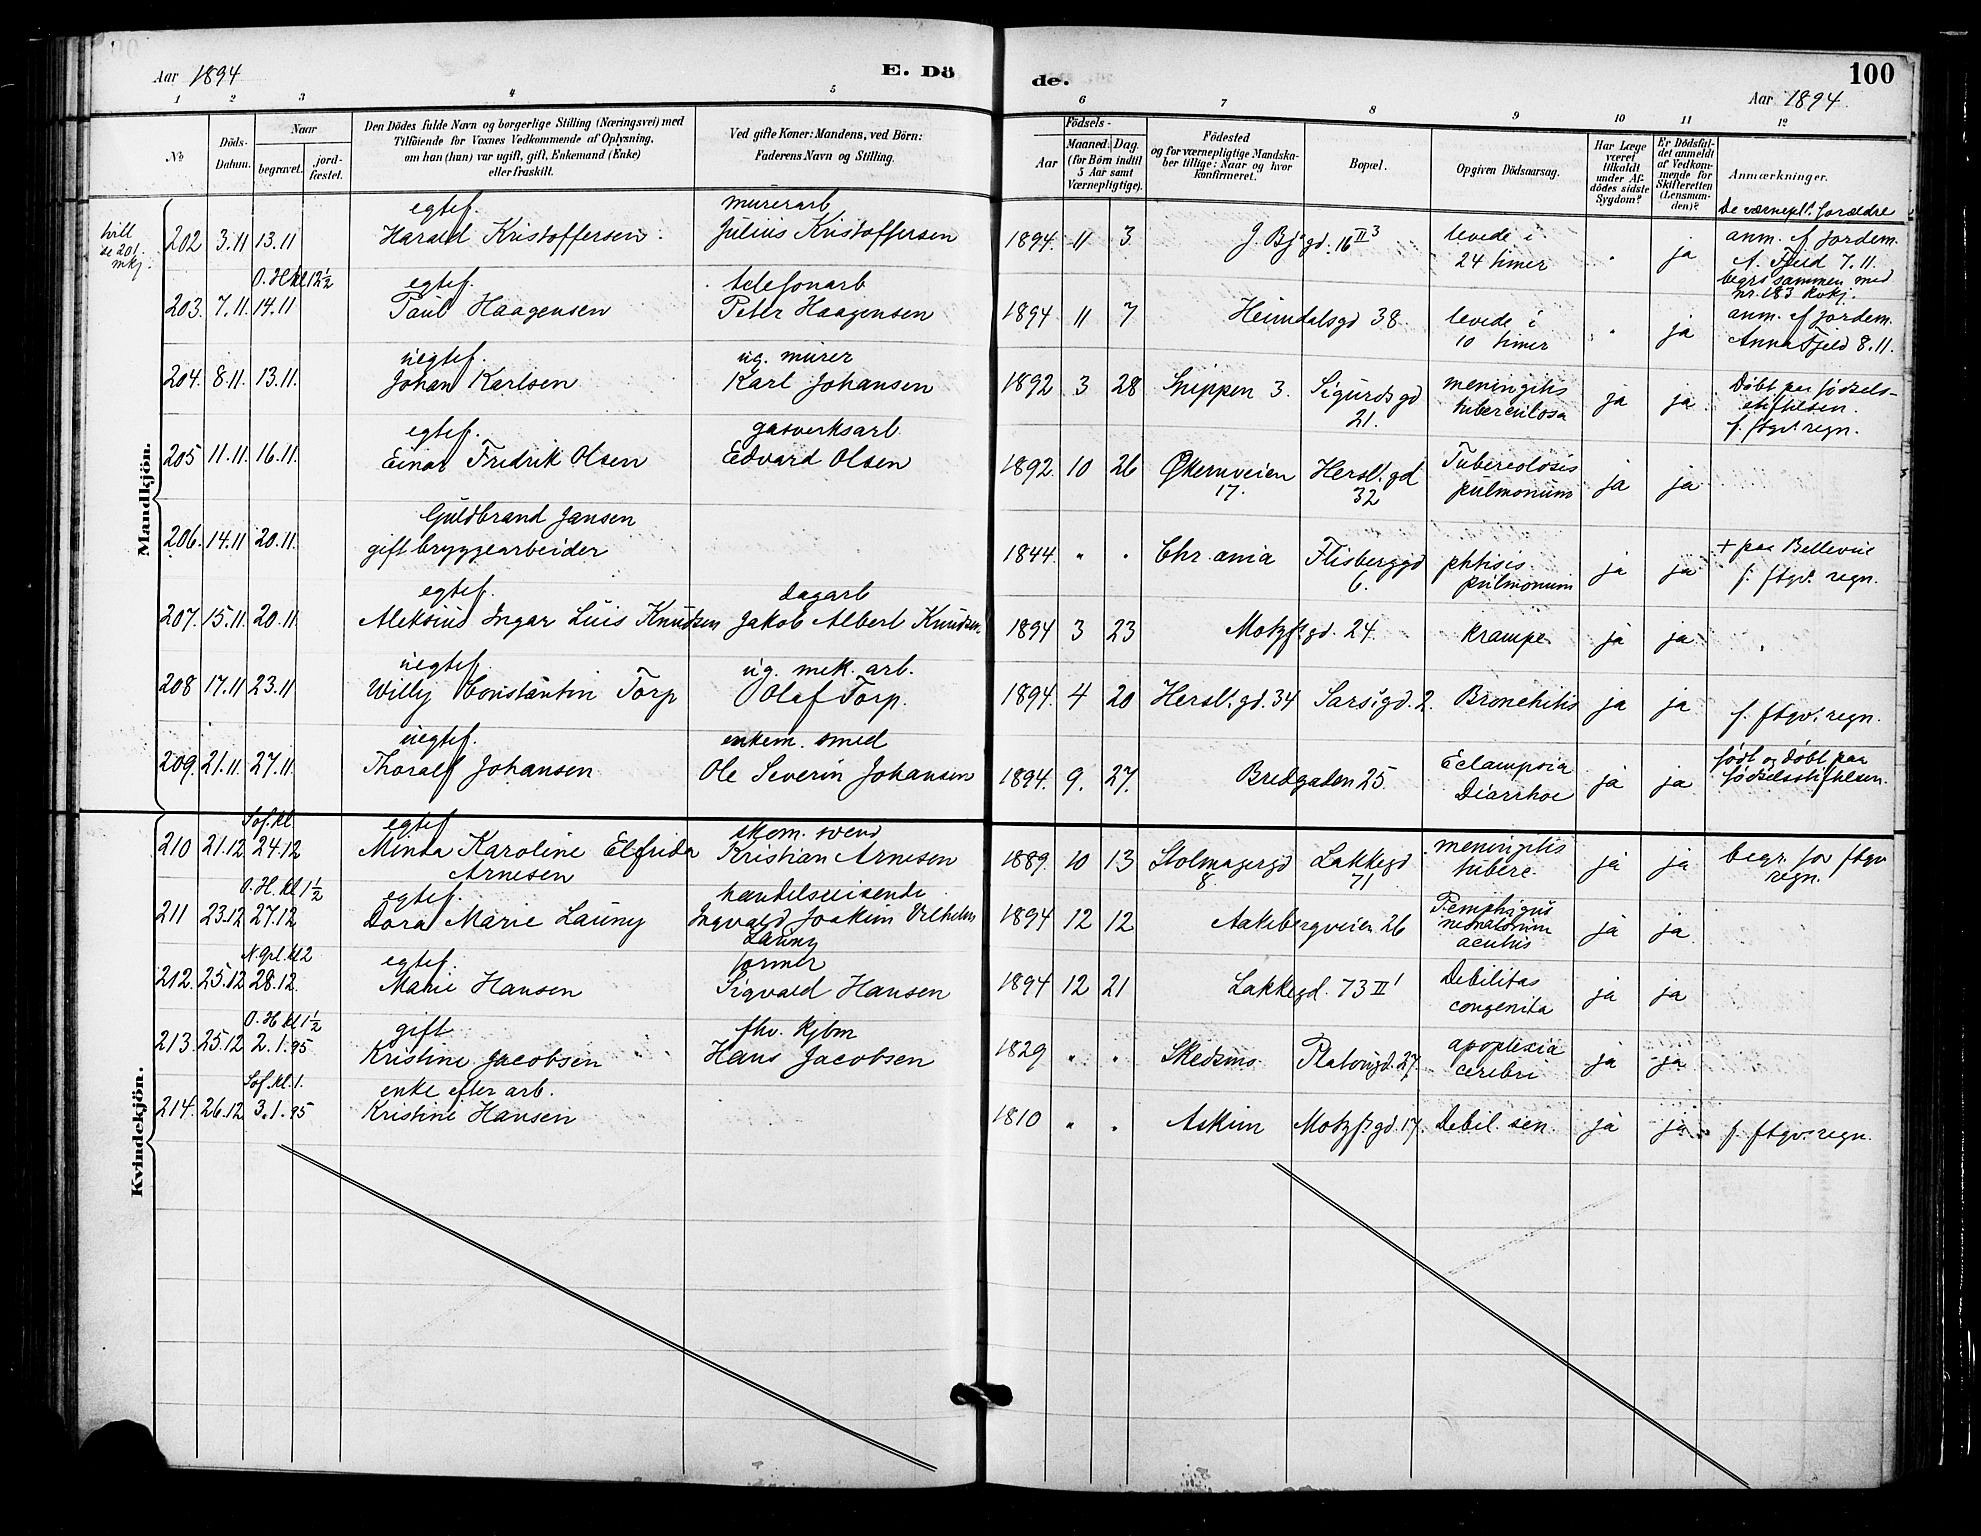 Aar 1894
E. Dö
de.
100
Aar 1894.
1 2 3 4 5
6 7 8 9 10 11 12
No
Döds-
Datum.
Naar
begravet.
jord-
fæstet.
Den Dödes fulde Navn og borgerlige Stilling (Næringsvei) med
Tilföiende for Voxnes Vedkommende af Oplysning,
om han (hun) var ugift, gift, Enkemand (Enke)
eller fraskilt.
Ved gifte Koner: Mandens, ved Börn:
Faderens Navn og Stilling.
Födsels-
Aar
Maaned. Dag.
(for Börn indtil
5 Aar samt
Værnepligtige).
Födested
og for værnepligtige Mandska-
ber tillige: Naar og hvor
konfirmeret.
Bopæl.
Opgiven Dödsaarsag.
Har Læge
været
tilkaldt
under Af-
dödes sidste
Sygdom?
Er Dödsfal-
det anmeldt
af Vedkom-
mende for
Skifteretten
(Lensman-
den)?
Anmærkninger.
Mandkjön.
till
se 201
mkj.
egtef. murerarb De værnepl. forældre
202 3.11 13.11 Harald Kristoffersen. Julius Kristoffersen 1894. 11 3. J. Bj. gd. 16 II 3 levede i 24 timer " ja anm. af jordem.
A. Fjeld 7.11.
begrs sammen med
nr. 183 kvkj.
O. H kl 12½ egtef. telefonarb
203. 7.11. 14.11 Paul Haagensen Peter Haagensen 1894 11 7 Heimdalsgd 38. levede i 10 timer " ja anm. af jordem.
Anna Fjeld 8.11.
uegtef. ug. murer
204. 8.11. 13.11. Johan Karlsen Karl Johansen 1892 3 28 Snippen 3. Sigurds gd 21. meningitis tuberculosa ja ja Døbt paa fødsels-
stiftelsen.
f. ftgv. regn.
egtef. gasverksarb.
205 11.11. 16.11. Einar Fridrik Olsen Edvard Olsen 1892. 10 26 Økernveien 17. Hersl. gd 32 Tuberculosis pulmonum ja ja
Guldbrand Jansen
206. 14.11 20.11. gift bryggearbeider 1844. " " Chr.ania Flisberggd 6. phtisis pulmonum ja ja + paa Bellevue
f. ftgv. regn.
egtef. dagarb
207. 15.11. 20.11. Aleksius Ingar Luis Knudsen Jakob Albert Knudsen. 1894 3 23 Motzf. gd. 24. Krampe ja ja
uegtef. ug. mek. arb.
208 17.11 23.11 Willy Constantin Torp Olaf Torp. 1894. 4 20 Hersl. gd. 34 Sarsigd. 2. Bronchitis ja ja f. ftgv. regn.
uegtef. enkem. smed
209. 21.11. 27.11. Thoralf Johansen Ole Severin Johansen 1894. 9. 27. Bredgaden 25. Eclampsia Diarrhoe ja ja født og døbt paa
fødselsstiftelsen.
Kvindekjön.
Sof. kl egtef skom. svend
210 21.12 24.12 Minda Karoline Elfrida Arnesen Kristian Arnesen 1889. 10 13 Stolmagergd 8. Lakkegd 71 meningitis tuberc. ja ja begr. for ftgv
regn.
O. H. kl 1½ egtef. handelsreisende
211 23.12 27.12 Dora Marie Launy Ingvald Joakim Vilhelm Launy 1894 12 12 Aakebergveien 26 Pemphigus neonatorum acutus ja ja
N. grl. kl 2 egtef. former
212. 25.12 28.12. Marie Hansen Sigvald Hansen 1894 12 21 Lakkegd. 73 II 1 Debilitas congenita ja ja
O. H kl 1½ gift fhv. kjbm
213. 25.12 2.1.95 Kristine Jacobsen Hans Jacobsen 1829 " " Skedsmo Platougd. 27. apoplexia cerebri ja ja
Sof. kl. 1. enke efter arb.
214. 26.12 3.1.95 Kristine Hansen 1810 " " Askim Motzf. gd. 17. Debil. sen. ja ja f. ftgv. regn.